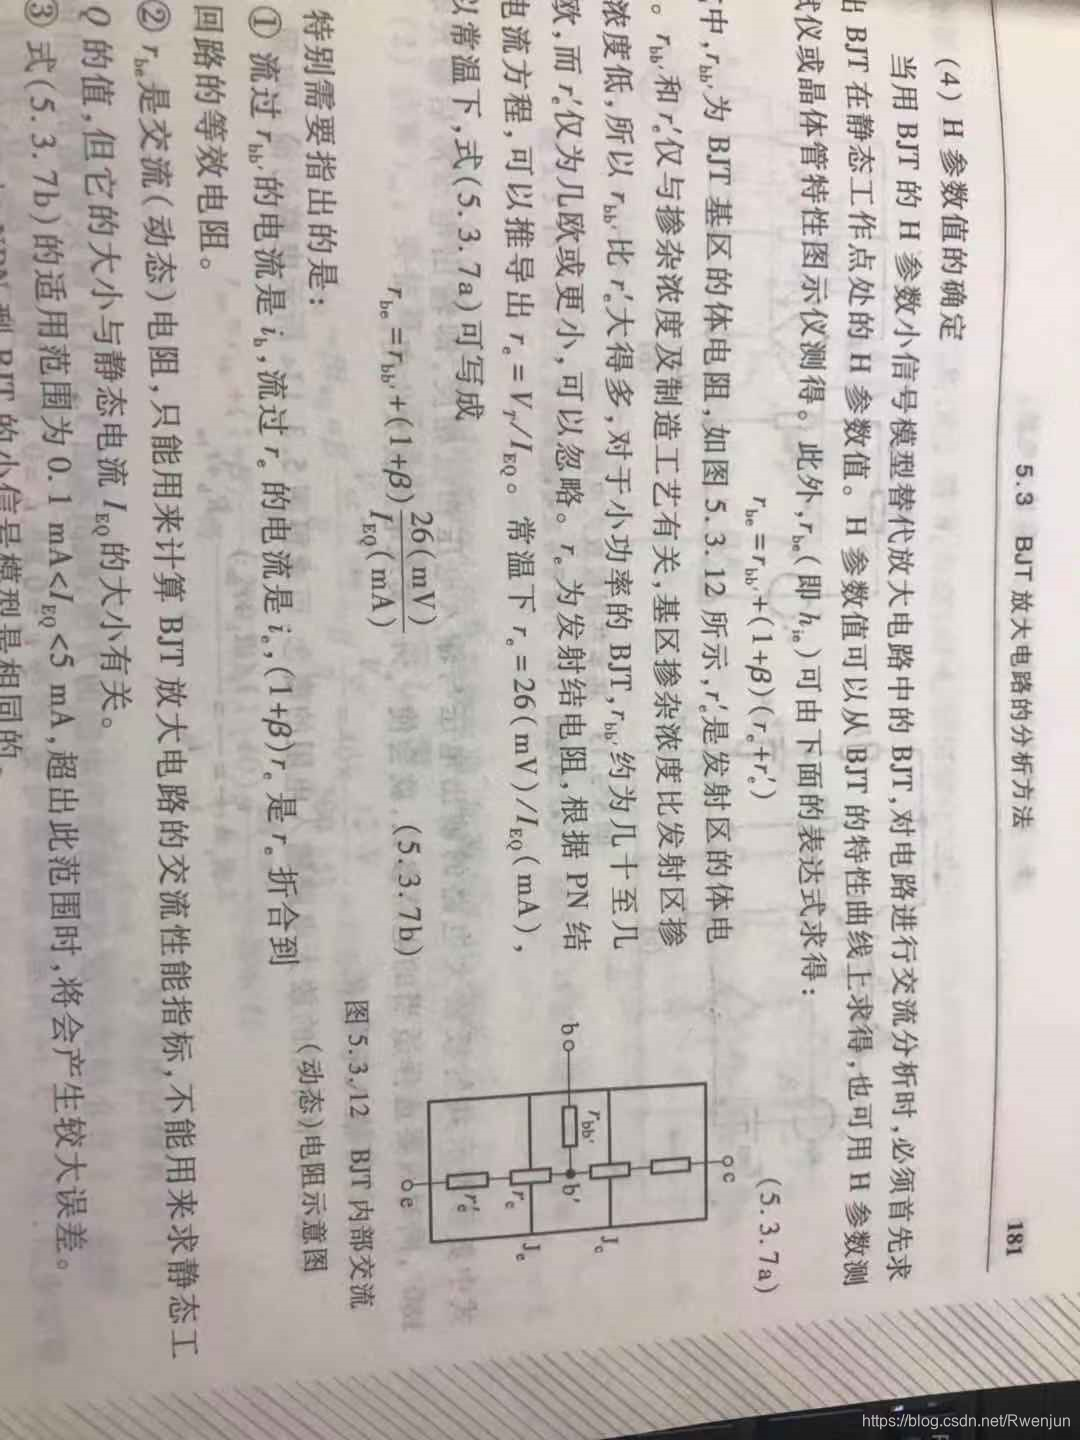 5.3 BJT 放大电路的分析方法 181
(4) H 参数值的确定
当用 BJT 的 H 参数小信号模型替代放大电路中的 BJT,对电路进行交流分析时,必须首先求
出 BJT 在静态工作点处的 H 参数值。H 参数值可以从 BJT 的特性曲线上求得,也可用 H 参数测
试仪或晶体管特性图示仪测得。此外,rbe(即 hie)可由下面的表达式求得:
rbe=rbb'+(1+β)(re+r'e) (5.3.7a)
中,rbb'为 BJT 基区的体电阻,如图 5.3.12 所示,r'e是发射区的体电
。rbb'和 r'e仅与掺杂浓度及制造工艺有关,基区掺杂浓度比发射区掺
浓度低,所以 rbb'比 r'e大得多,对于小功率的 BJT,rbb'约为几十至几
欧,而 r'e仅为几欧或更小,可以忽略。re为发射结电阻,根据 PN 结
电流方程,可以推导出 re=VT/IEQ。常温下 re=26(mV)/IEQ(mA),
以常温下,式(5.3.7a)可写成
rbe=rbb'+(1+β)26(mV)/IEQ(mA) (5.3.7b)
特别需要指出的是:
① 流过 rbb'的电流是 ib,流过 re的电流是 ie,(1+β)re是 re折合到
回路的等效电阻。
② rbe是交流(动态)电阻,只能用来计算 BJT 放大电路的交流性能指标,不能用来求静态工
Q 的值,但它的大小与静态电流 IEQ的大小有关。
③ 式(5.3.7b)的适用范围为 0.1 mA<IEQ<5 mA,超出此范围时,将会产生较大误差。
型 BJT 的小信号模型是相同的,
c
Jc
b
rbb'
b'
re
Je
r'e
e
图 5.3.12 BJT 内部交流
(动态)电阻示意图
https://blog.csdn.net/Rwenjun